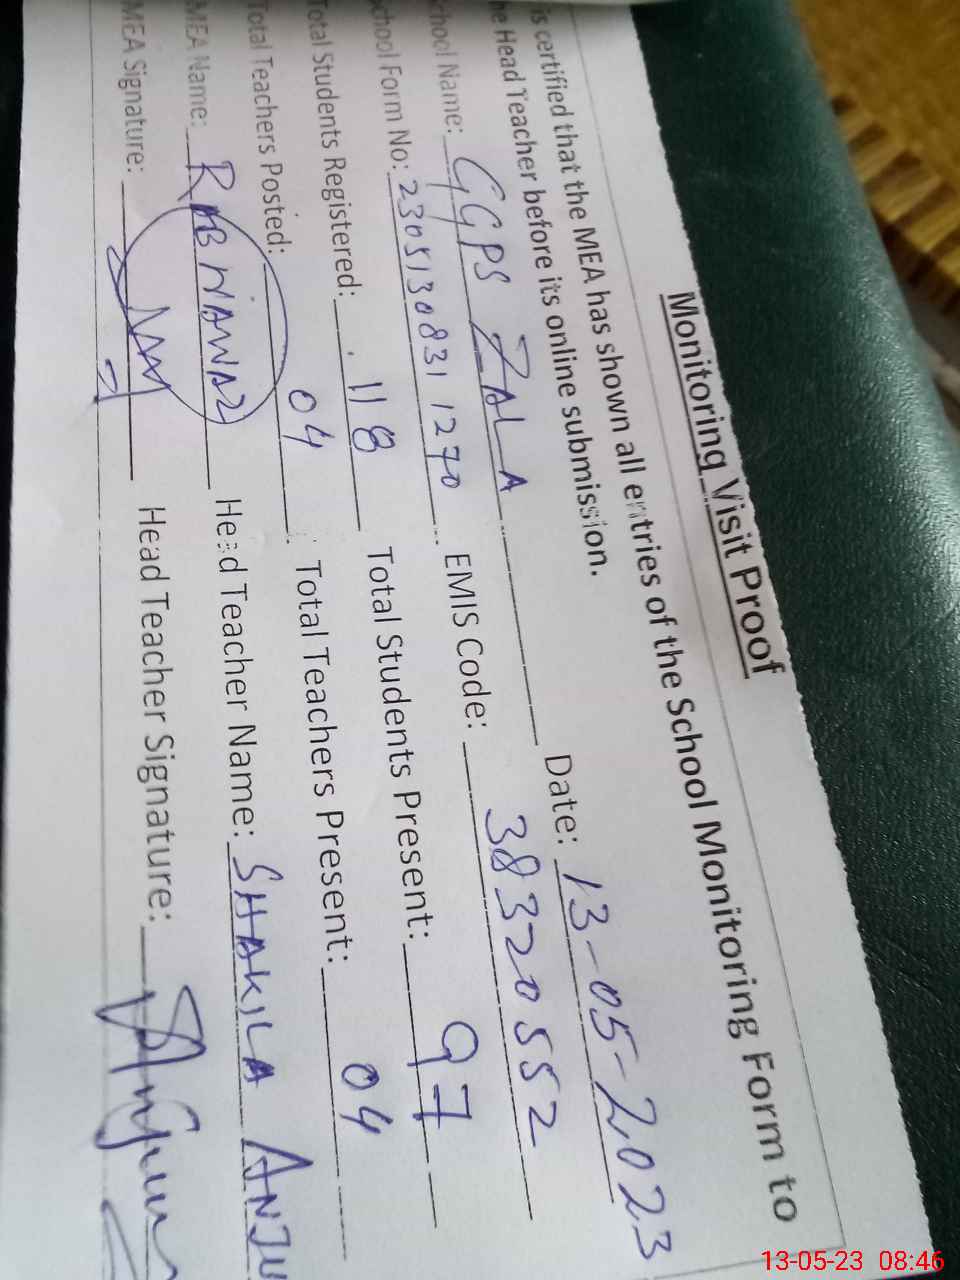 Monitoring Visit Proof
is certified that the MEA has shown all entries of the School Monitoring Form to
he Head Teacher before its online submission.
chool Name: GGPS ZALA Date: 13-05-2023
chool Form No: 2305130831 1270 EMIS Code: 38320552
Total Students Registered: 118 Total Students Present: 97
Total Teachers Posted: 04 Total Teachers Present: 04
MEA Name: RAB NAWAZ Head Teacher Name: SHAKILA ANJU
MEA Signature: Head Teacher Signature: Anjum
13-05-23 08:46